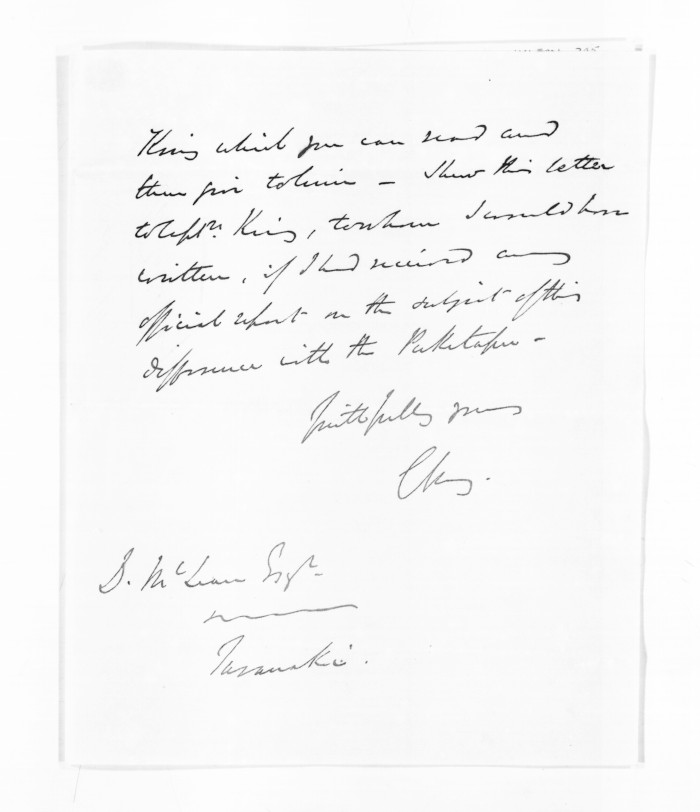 King which you can read and
then give to him – Shew this letter
to Captn. King, to whom I would have
written, if I had received any
official report on the subject of this
difference with the Puketapu –
Faithfully yours
D. McLean Esqr.
Taranaki.